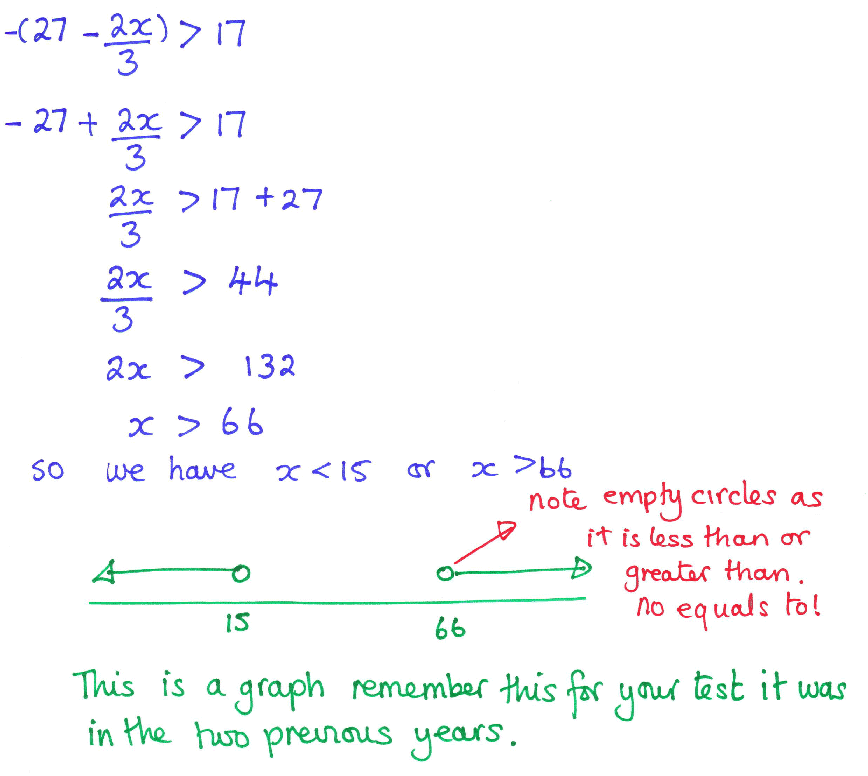 -(27 - 2x/3) > 17
- 27 + 2x/3 > 17
2x/3 > 17 + 27
2x/3 > 44
2x > 132
x > 66
so we have x < 15 or x > 66
note empty circles as
it is less than or
greater than.
no equals to!
15 66
This is a graph remember this for your test it was
in the two previous years.